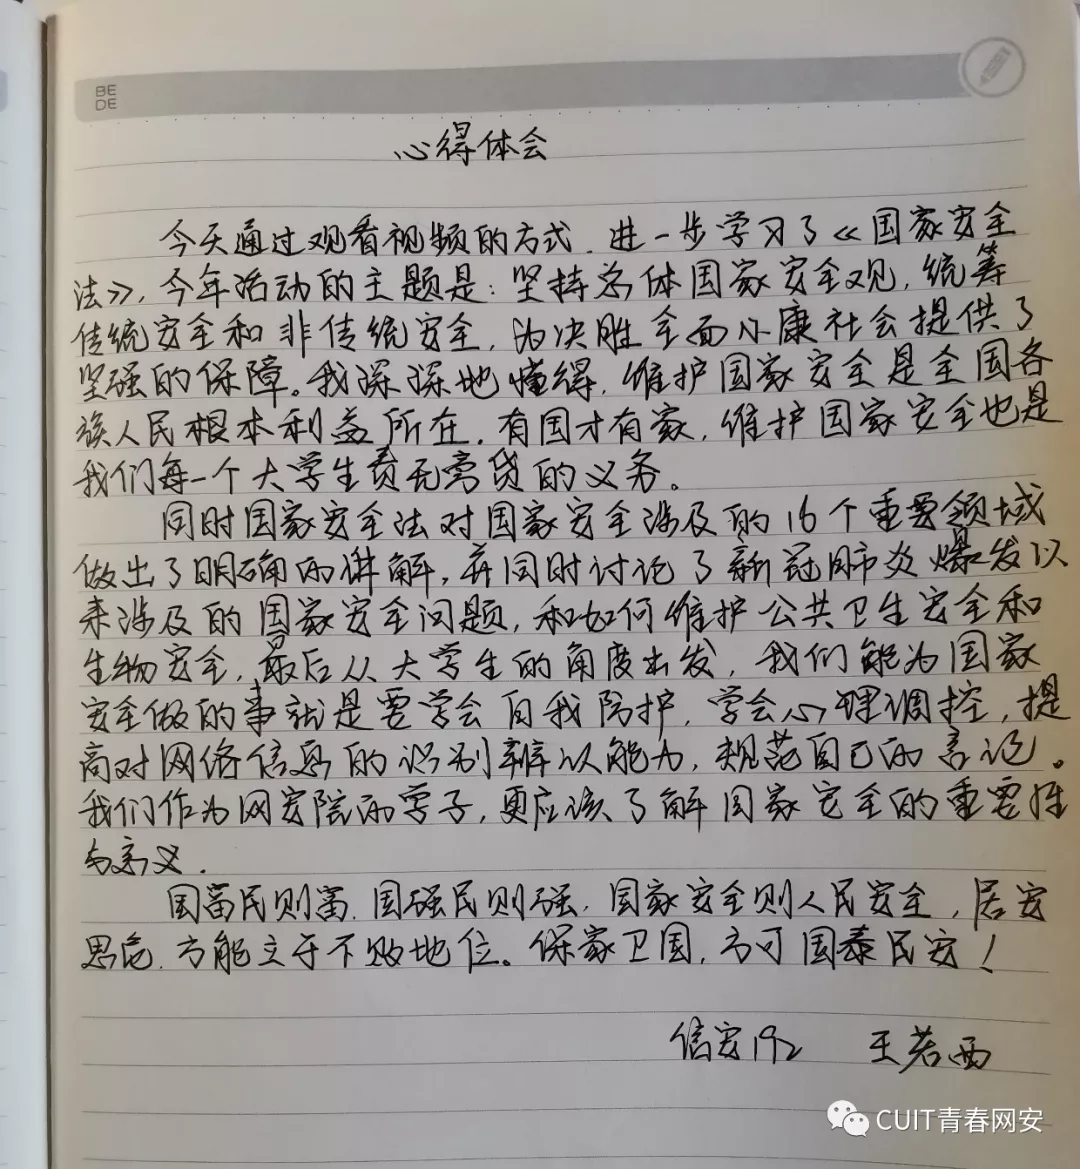 BE
DE
心得体会
今天通过观看视频的方式，进一步学习了《国家安全
法》，今年活动的主题是：坚持总体国家安全观，统筹
传统安全和非传统安全，为决胜全面小康社会提供了
坚强的保障。我深深地懂得，维护国家安全是全国各
族人民根本利益所在，有国才有家，维护国家安全也是
我们每一个大学生责无旁贷的义务。
同时国家安全法对国家安全涉及的16个重要领域
做出了明确的讲解，并同时讨论了新冠肺炎爆发以
来涉及的国家安全问题，和如何维护公共卫生安全和
生物安全，最后从大学生的角度出发，我们能为国家
安全做的事就是要学会自我防护，学会心理调控，提
高对网络信息的识别辨认能力，规范自己的言论。
我们作为网安院的学子，更应该了解国家安全的重要性
与意义.
国富民则富，国强民则强，国家安全则人民安全，居安
思危，方能立于不败地位。保家卫国，方可国泰民安！
信安192 王若西
CUIT青春网安